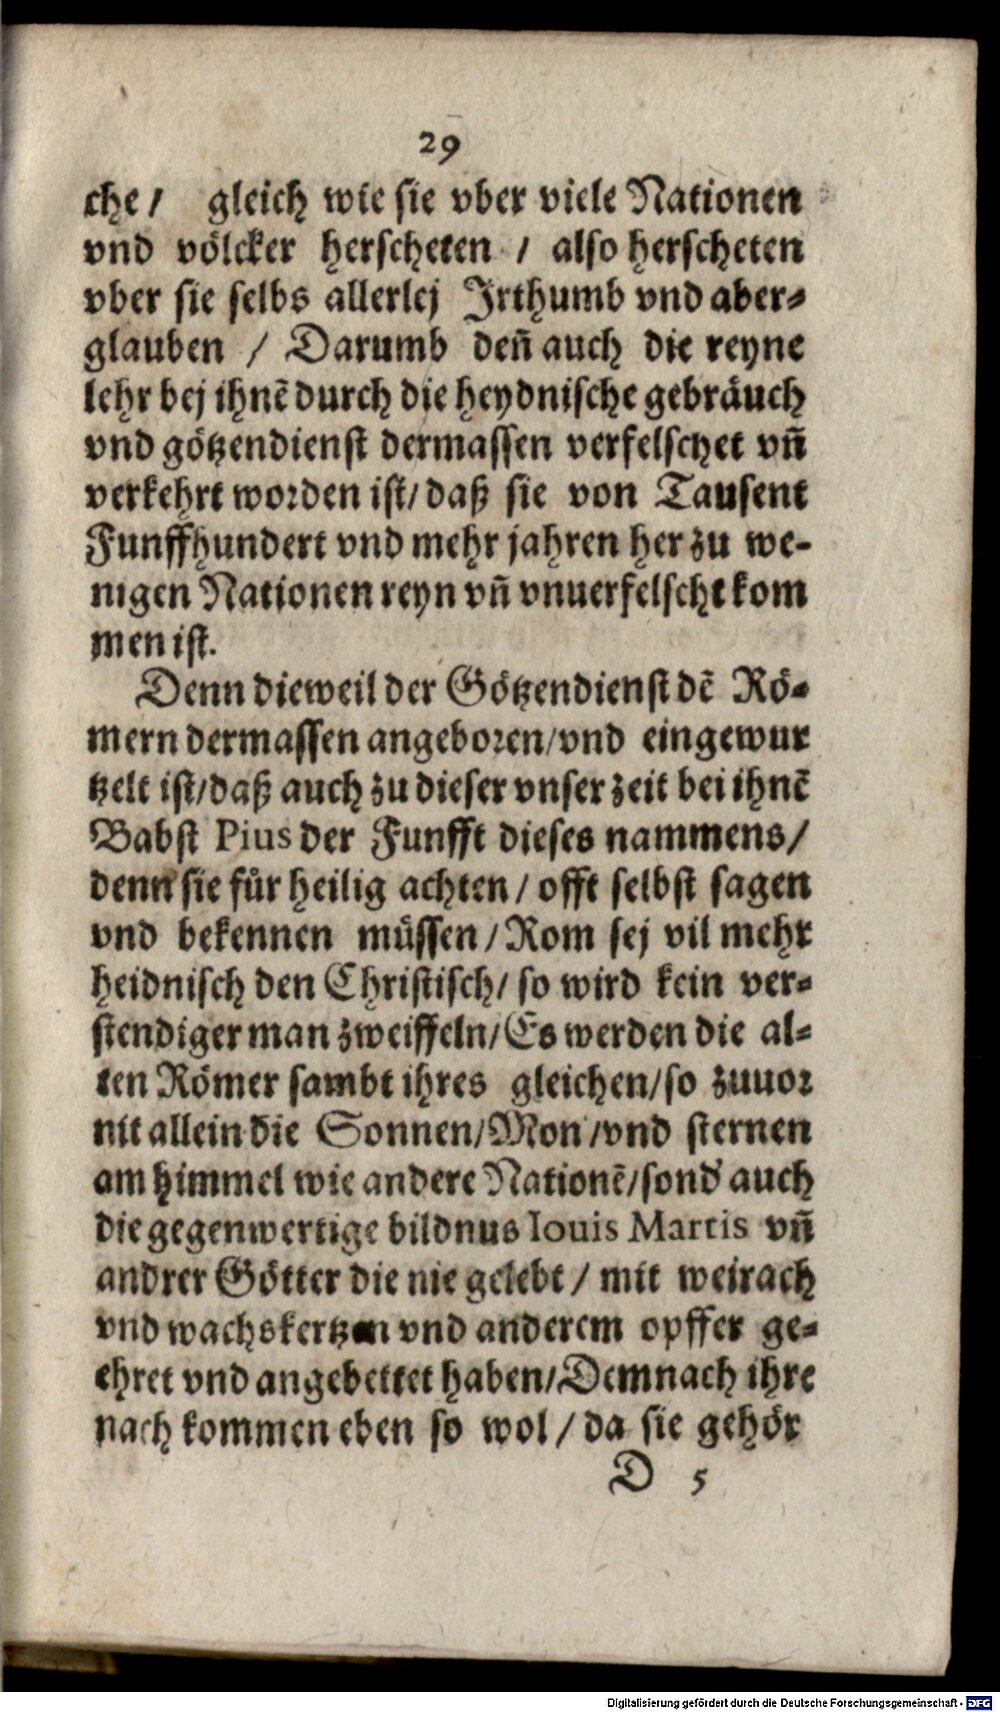 29
che / gleich wie sie vber viele Nationen
vnd völcker herscheten / also herscheten
vber sie selbs allerlej Irthumb vnd aber-
glauben / Darumb deñ auch die reyne
lehr bej ihnẽ durch die heydnische gebräuch
vnd götzendienst dermassen verfelschet vñ
verkehrt worden ist / daß sie von Tausent
Funffhundert vnd mehr jahren her zu we-
nigen Nationen reyn vñ vnuerfelscht kom
men ist.
Denn dieweil der Götzendienst dẽ Rö-
mern dermassen angeboren / vnd eingewur
tzelt ist / daß auch zu dieser vnser zeit bei ihnẽ
Babst Pius der Funfft dieses nammens /
denn sie für heilig achten / offt selbst sagen
vnd bekennen müssen / Rom sej vil mehr
heidnisch den Christisch / so wird kein ver-
stendiger man zweiffeln / Es werden die al-
ten Römer sambt ihres gleichen / so zuuor
nit allein die Sonnen / Mon / vnd sternen
am himmel wie andere Nationẽ / sond' auch
die gegenwertige bildnus Iouis Martis vñ
andrer Götter die nie gelebt / mit weirach
vnd wachskertzen vnd anderem opffer ge-
ehret vnd angebettet haben / Demnach ihre
nach kommen eben so wol / da sie gehör
D 5
Digitalisierung gefördert durch die Deutsche Forschungsgemeinschaft - DFG